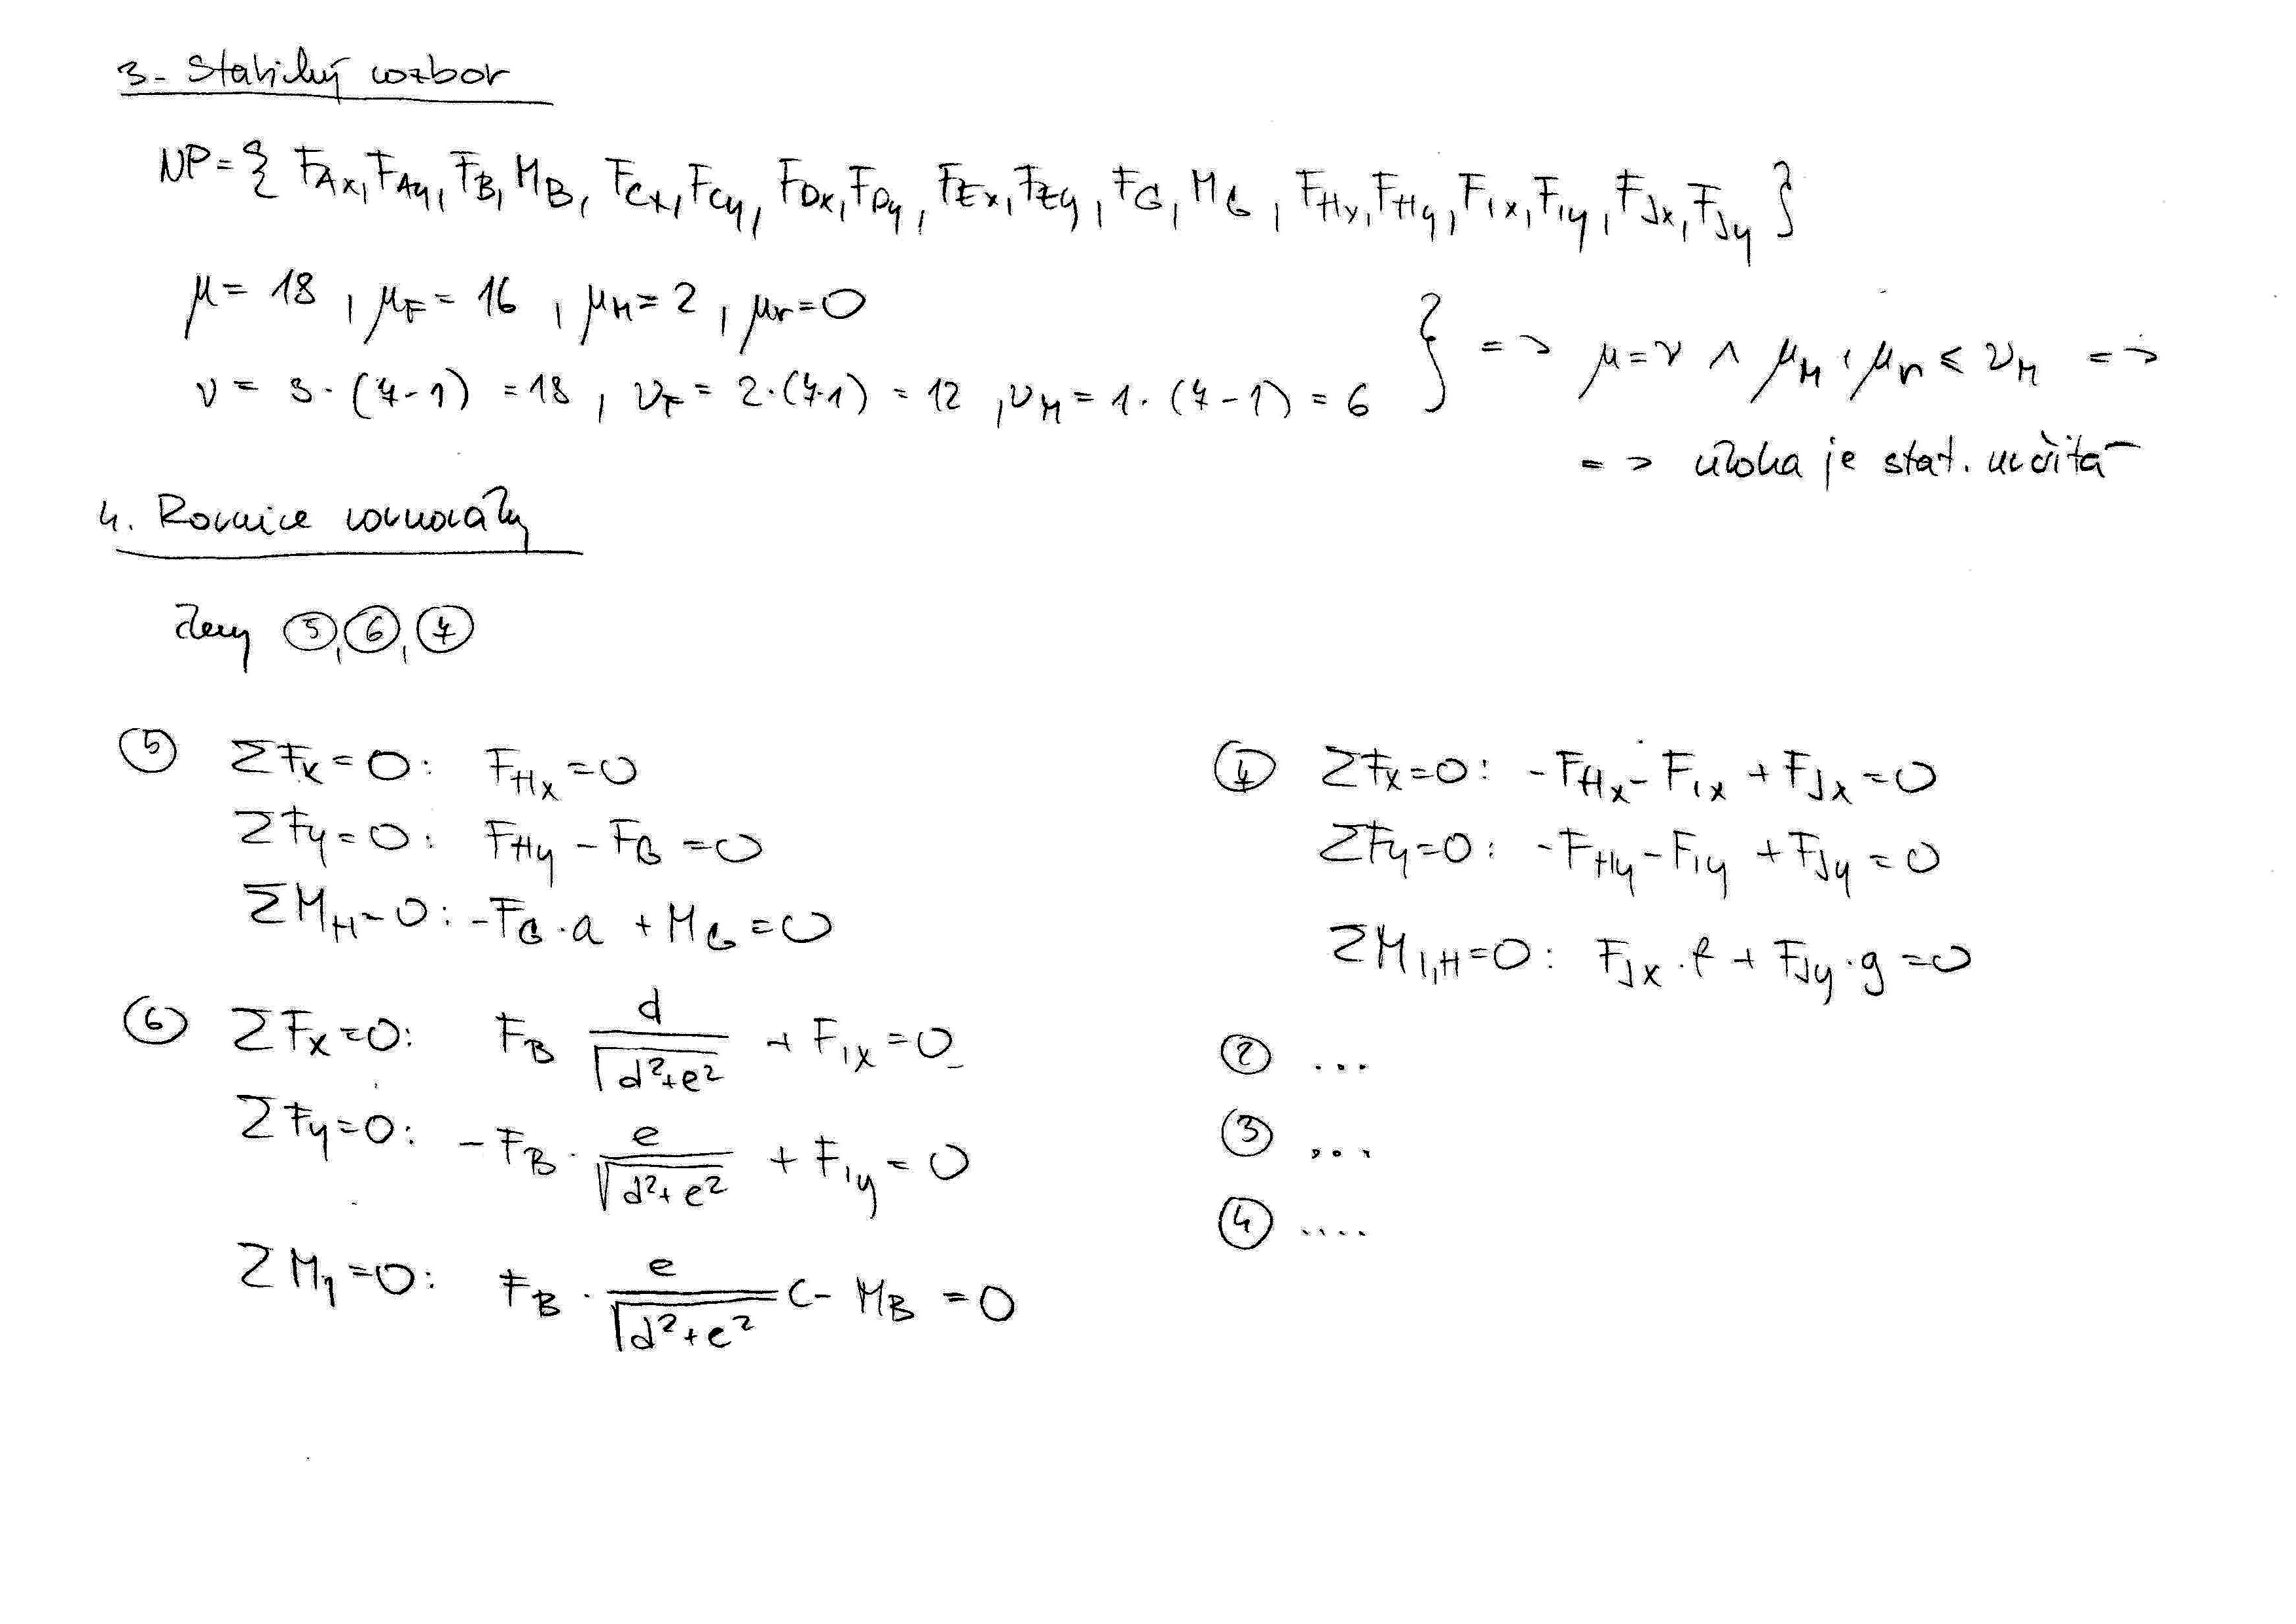 3. Statický rozbor
NP = { F_Ax, F_Ay, F_B, M_B, F_Cx, F_Cy, F_Dx, F_Dy, F_Ex, F_Ey, F_G, M_G, F_Hx, F_Hy, F_Ix, F_Iy, F_Jx, F_Jy }
μ = 18, μ_F = 16, μ_M = 2, μ_r = 0
ν = 3·(7-1) = 18, ν_F = 2·(7-1) = 12, ν_M = 1·(7-1) = 6 } => μ = ν ∧ μ_M + μ_r ≤ ν_M =>
=> úloha je stat. určitá
4. Rovnice rovnováhy
členy ⑤, ⑥, ⑦
⑤ ΣF_x = 0: F_Hx = 0
ΣF_y = 0: F_Hy - F_G = 0
ΣM_H = 0: -F_G·a + M_G = 0
⑥ ΣF_x = 0: F_B d/√(d²+e²) + F_Ix = 0
ΣF_y = 0: -F_B · e/√(d²+e²) + F_Iy = 0
ΣM_I = 0: F_B · e/√(d²+e²) c - M_B = 0
⑦ ΣF_x = 0: -F_Hx - F_Ix + F_Jx = 0
ΣF_y = 0: -F_Hy - F_Iy + F_Jy = 0
ΣM_I,H = 0: F_Jx·f + F_Jy·g = 0
② ...
③ ...
④ ....